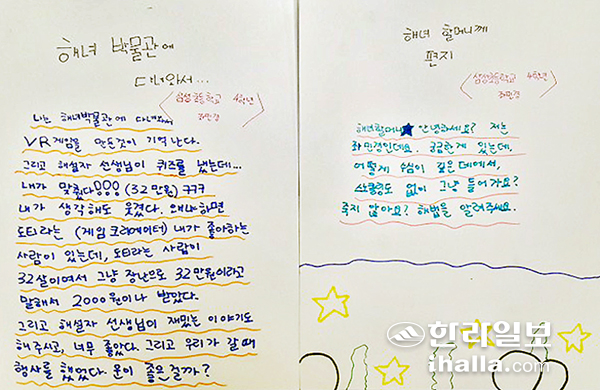 해녀 박물관에
다녀와서...
삼성초등학교 4학년
나는 해녀박물관에 다녀와서
VR게임을 만든것이 기억난다.
그리고 해설자 선생님이 퀴즈를 냈는데...
내가 맞췄다!!! (32만원) ㅋㅋㅋ
내가 생각해도 웃겼다. 왜냐하면
도티라는 (게임 크리에이터) 내가 좋아하는
사람이 있는데, 도티라는 사람이
32살이여서 그냥 장난으로 32만원이라고
말해서 2000원이나 받았다.
그리고 해설자 선생님이 재밌는 이야기도
해주시고, 너무 좋았다. 그리고 우리가 갈 때
행사를 했었다. 운이 좋은걸까?
해녀 할머니께
편지
삼성초등학교 4학년
해녀할머니★ 안녕하세요? 저는
최민경인데요. 궁금한게 있는데,
어떻게 수심이 깊은데에서,
산소통도 없이 그냥 들어가요?
죽지 않아요? 해법을 알려주세요.
한라일보
ihalla.com